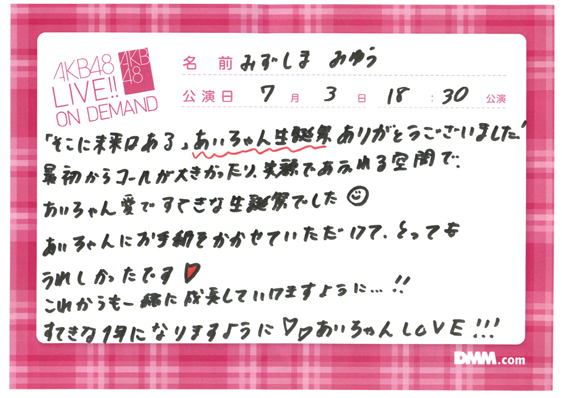 AKB48
LIVE!!
ON DEMAND
AKB
48
名 前 みずしま みゆう
公演日 7 月 3 日 18 : 30 公演
「そこに未来はある」あいちゃん生誕祭ありがとうございました!
最初からコールが大きかったり、笑顔であふれる空間で、
あいちゃん愛ですてきな生誕祭でした☺
あいちゃんにお手紙をかかせていただけて、とっても
うれしかったです♥
これからも一緒に成長していけますように...!!
すてきな1年になりますように♡♡あいちゃんLOVE!!!
DMM.com